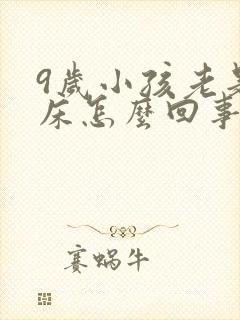 9歲小孩老是
床怎麼回事
賽蝸牛